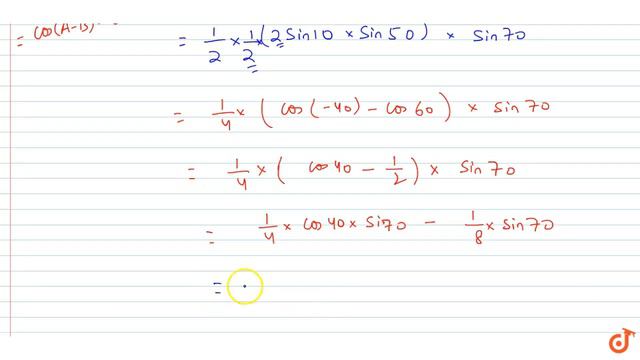 = cos(A-B)-
= 1/2 × 1/2 × (2 Sin10 × Sin50) × Sin70
= 1/4 × ( cos(-40) - cos60 ) × sin70
= 1/4 × ( cos40 - 1/2 ) × Sin70
= 1/4 × cos40 × Sin70 - 1/8 × sin70
= .
d